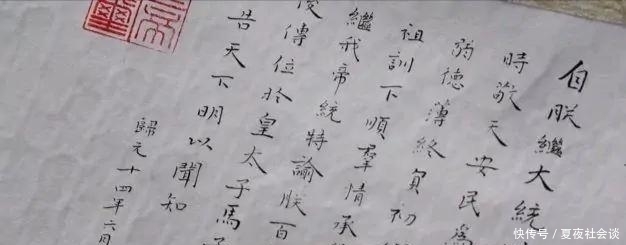 自朕繼大統
時敬天安民為
弱德薄終負初
祖訓下順羣情承
繼我帝統特諭朕百
傳位於皇太子馬
告天下明以聞知
歸元十四年六月
快传号 / 夏夜社会谈